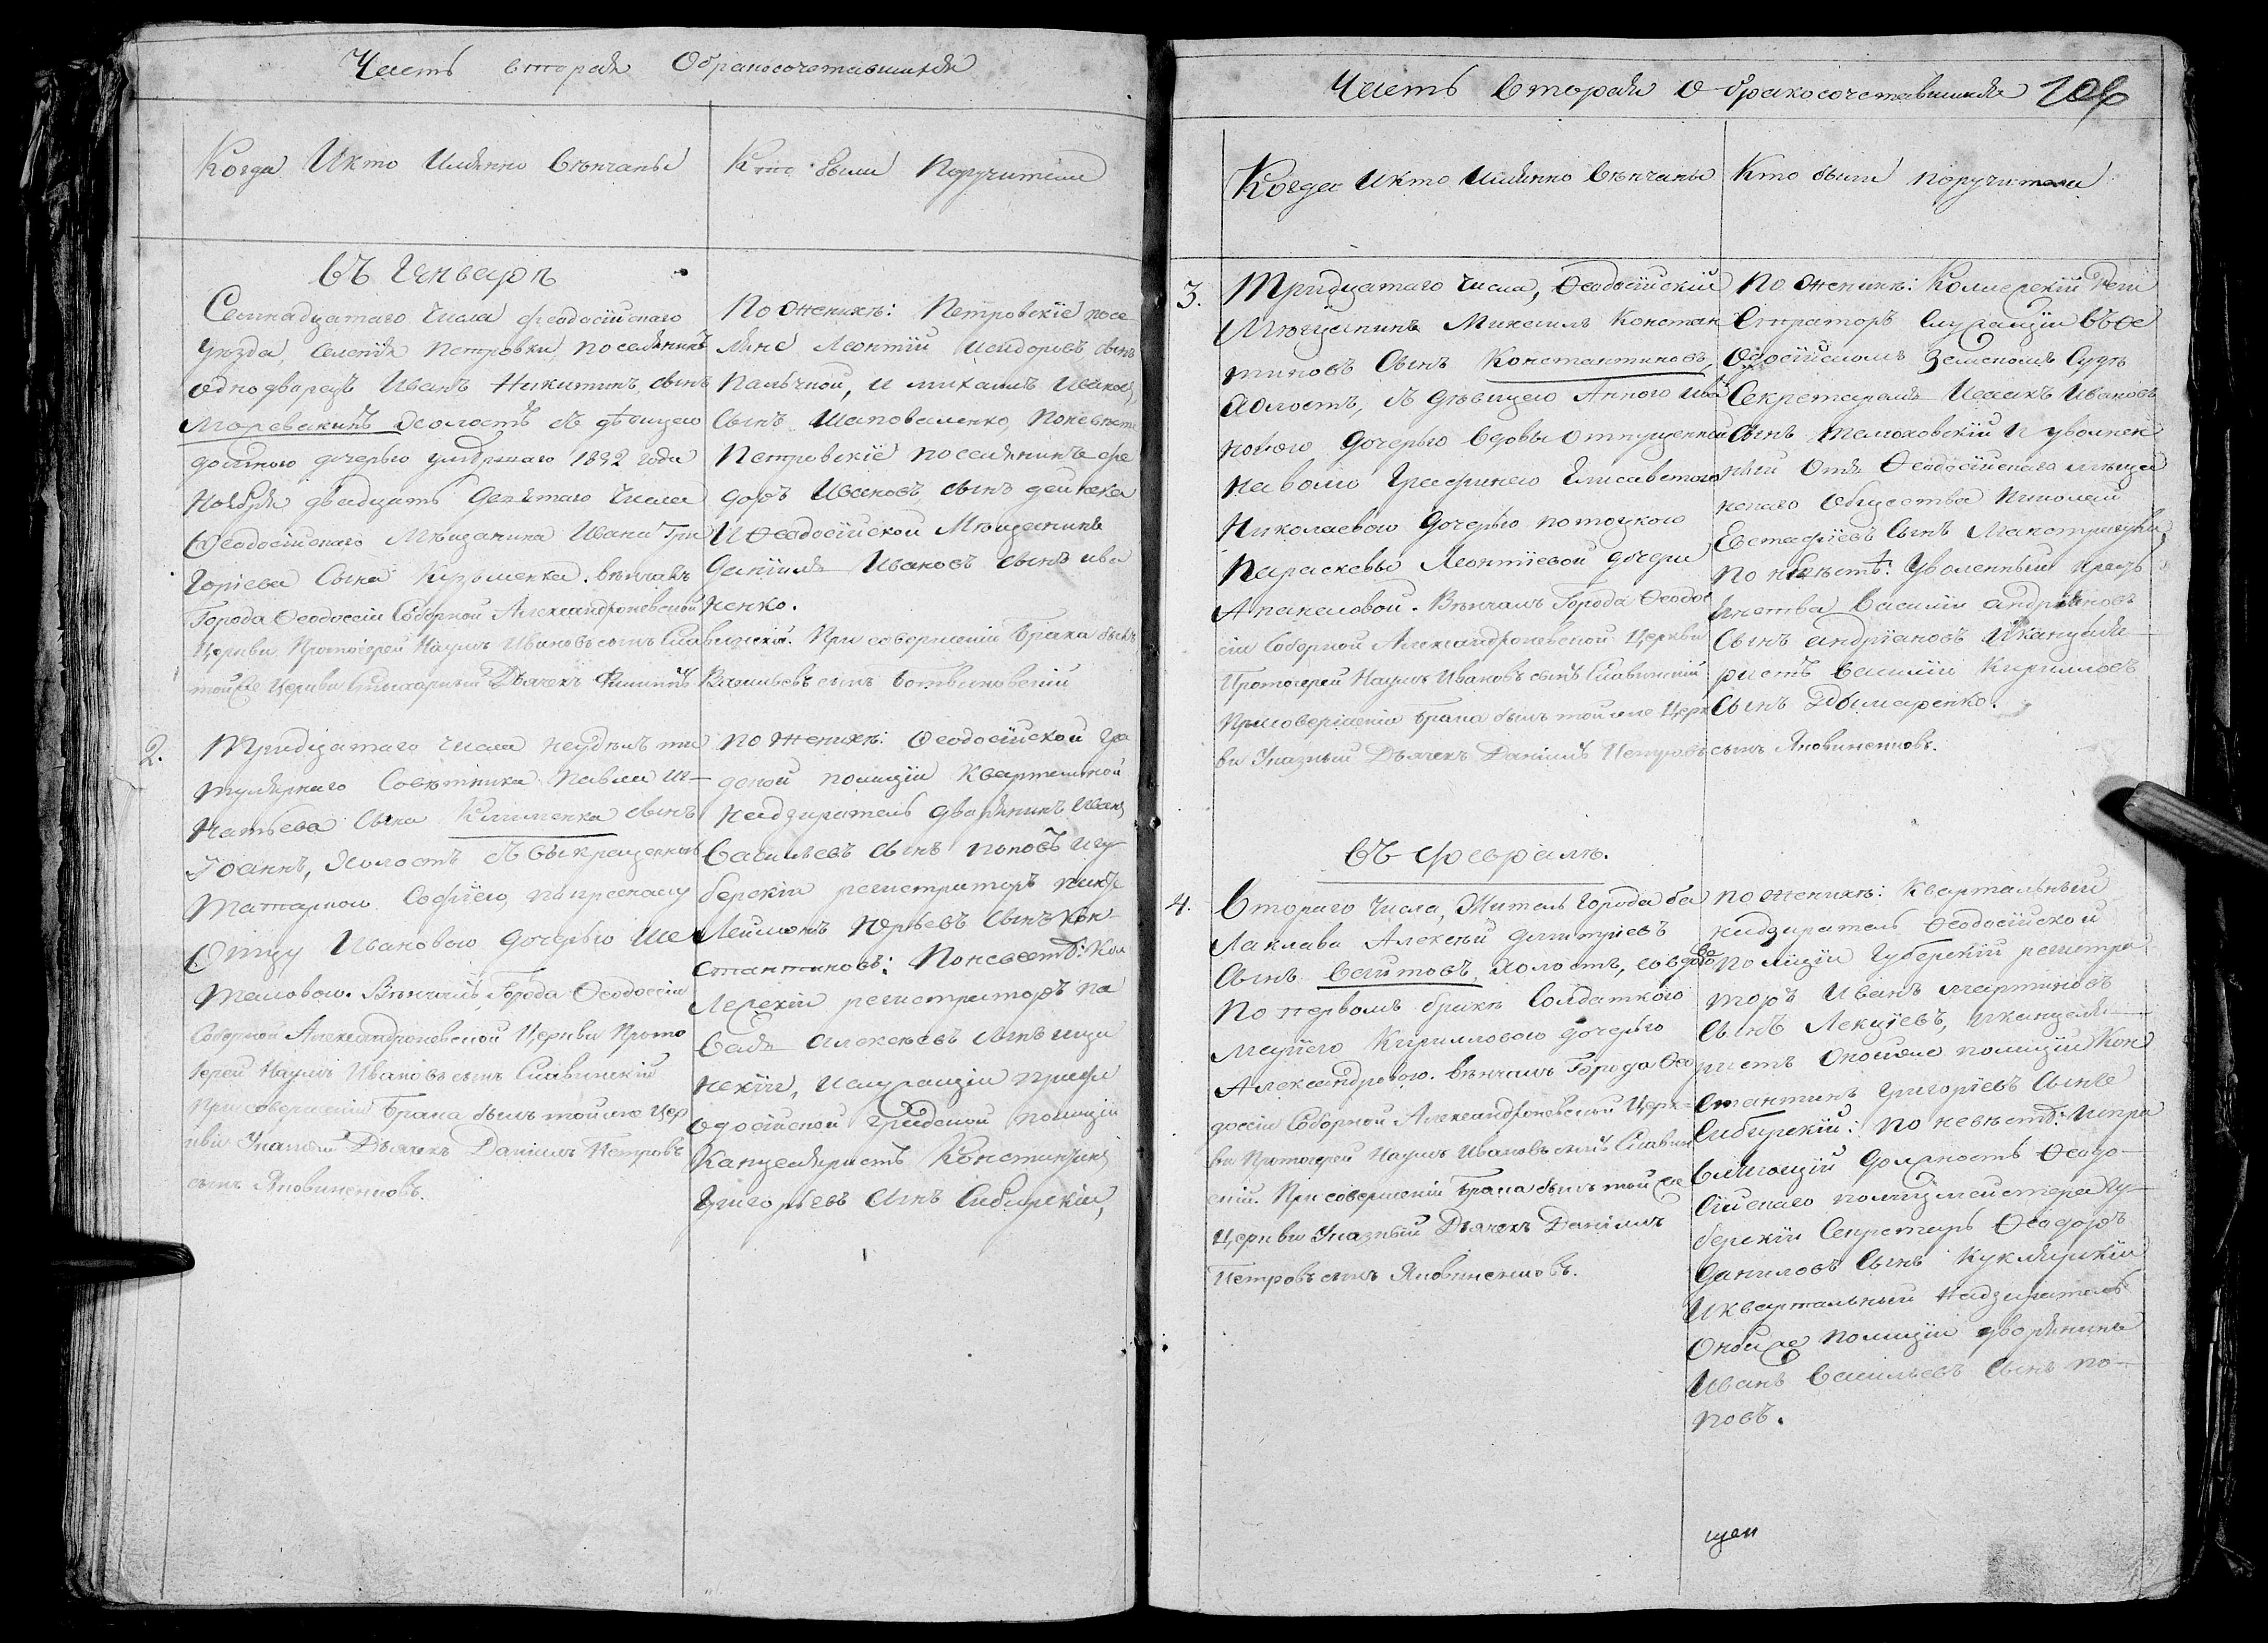 Часть вторая Обракосочетавшихся
Когда Икто Имянно Вѣнчаны
Кто были Поручители
въ Генварѣ
Семнадцатаго Числа феодосійскаго
Уезда, Селенія Петровки поселянинъ
однодворецъ Иванъ Никитинъ сынъ
Моревакинъ Холостъ съ дѣвицею
дочерью умершаго 1832 года
Ноября двадцать Девятаго Числа
Ѳеодосійскаго Мѣщанина Ивана Гри
горіева Сына Кузьменка. вѣнчалъ
Города Ѳеодосіи Соборной Александроневской
Церкви Протоіерей Наумъ Ивановъ сынъ Славинскій. При совершеніи Брака былъ
тойже Церкви Дьячекъ Филиппъ Васильевъ сынъ Ботвиновскій
По Женихѣ: Петровскіе посе
ляне Леонтій Исидоровъ сынъ
Пальчной, и михаилъ Ивановъ
Сынъ Шаповаленко, Поневѣстѣ
Петровскіе поселянинъ фе
доръ Ивановъ сынъ дейнека
И Ѳеодосійской Мѣщанинъ
Даніилъ Ивановъ сынъ ива
ненко.
2.
Тридцатаго числа ти
тулярнаго Совѣтника Павла Иг-
натьева Сына Клименка сынъ
Іоаннъ, Холостъ съ выкрещенною
Татаркою Софіею, по
Отцу Ивановою Дочерью Ше
Вѣнчалъ Города Ѳеодосіи
Соборной Александроневской Церкви Прото
іерей Наумъ Ивановъ сынъ Славинскій
При совершеніи Брака былъ тойже Цер
кви Указный Дьячекъ Даніилъ Петровъ
сынъ Яновиненковъ.
по Женихѣ: Ѳеодосійской Гра
дской полиціи Квартальной
Надзиратель дворянинъ Иванъ
Васильевъ сынъ поповъ игу
берскій регистраторъ панте
леймонъ Юрьевъ Сынъ Кон-
стантиновъ; Поневестѣ: Кол
лежскій регистраторъ па
велъ Алексѣевъ сынъ
Ѳе
одосійской Градской полиціи
Канцеляристъ Константинъ
Григорьевъ Сынъ Сибирскій,
Часть вторая о бракосочетавшихся 106
Когда Икто Имянно Вѣнчаны
Кто были поручители
3.
Тридцатаго Числа, Ѳеодосійскій
Мѣщанинъ Михаилъ Констан
тиновъ Сынъ Константиновъ,
Холостъ, съ дѣвицею Анною Ива
новою Дочерью вдовы отпущенной
на волю Графинею Елисаветою
Николаевою Дочерью потоцкою
Параскевы Леонтіевой дочери
Апанасовой. Вѣнчалъ Города Ѳеодо
сіи Соборной Александроневской Церкви
Протоіерей Наумъ Ивановъ сынъ Славинскій
При совершеніи брака былъ тойже Церк
ви Указный Дьячекъ Даніилъ Петровъ сынъ Яновиненковъ.
По Женихѣ: Коллежскій Реги
страторъ служащій въ Ѳе
одосійскомъ Земскомъ Судѣ
Секретаремъ Исаакъ Ивановъ
Сынъ Телюховскій И уволнен
ный Отъ Ѳеодосійскаго мѣща
нскаго Общества Николай
Евстафіевъ Сынъ
По Невѣстѣ: Уволенный
Василій андріяновъ
Сынъ андріановъ Иканцеля
ристъ Василій Кириловъ
Сынъ Дымаренко.
въ февралѣ.
4.
Втораго Числа, Житель Города ба
лаклава Алексѣй дмитріевъ
Сынъ Сеитовъ, холостъ, со вдовою
По первомъ бракѣ Солдаткою
Маріею Кириловою дочерью
Александровою. Вѣнчалъ Города Ѳео
досіи Соборной Александроневской Церк=
ви Протоіерей Наумъ Ивановъ сынъ Славин
скій. При совершеніи брака былъ тойже
Церкви Указный Дьячекъ Даніилъ
Петровъ сынъ Яновиненковъ.
по женихѣ: Квартальный
надзиратель Ѳеодосійской
Полиціи Губерскій регистра
торъ Иванъ мартиновъ
сынъ Лекціевъ, иканцеля
ристъ Онойже полиціи Кон
стантинъ Григоріевъ Сынъ
Сибирскій: по невѣстѣ: Испра
вляющій Должность Ѳеодо-
сійскаго полицмейстера Гу-
берскій Секретарь Ѳеодоръ
Даниловъ Сынъ Куклярскій
Иквартальный Надзиратель
Онойже полиціи дворянинъ
Иванъ Васильевъ Сынъ По-
повъ.